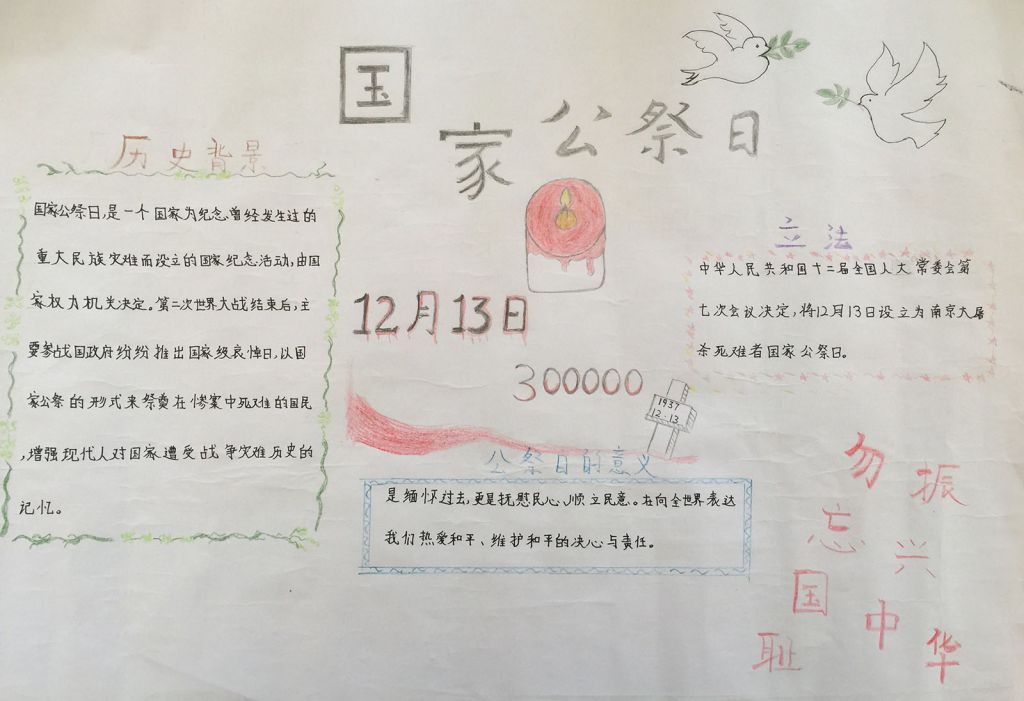 国家公祭日
历史背景
国家公祭日,是一个国家为纪念曾经发生过的
重大民族灾难而设立的国家纪念活动,由国
家权力机关决定。第二次世界大战结束后,主
要参战国政府纷纷推出国家级哀悼日,以国
家公祭的形式来祭奠在惨案中死难的国民
,增强现代人对国家遭受战争灾难历史的
记忆。
12月13日
300000
1937
12.13
立法
中华人民共和国十二届全国人大常委会第
七次会议决定,将12月13日设立为南京大屠
杀死难者国家公祭日。
公祭日的意义
是缅怀过去,更是抚慰民心、顺立民意。在向全世界表达
我们热爱和平、维护和平的决心与责任。
勿忘国耻
振兴中华